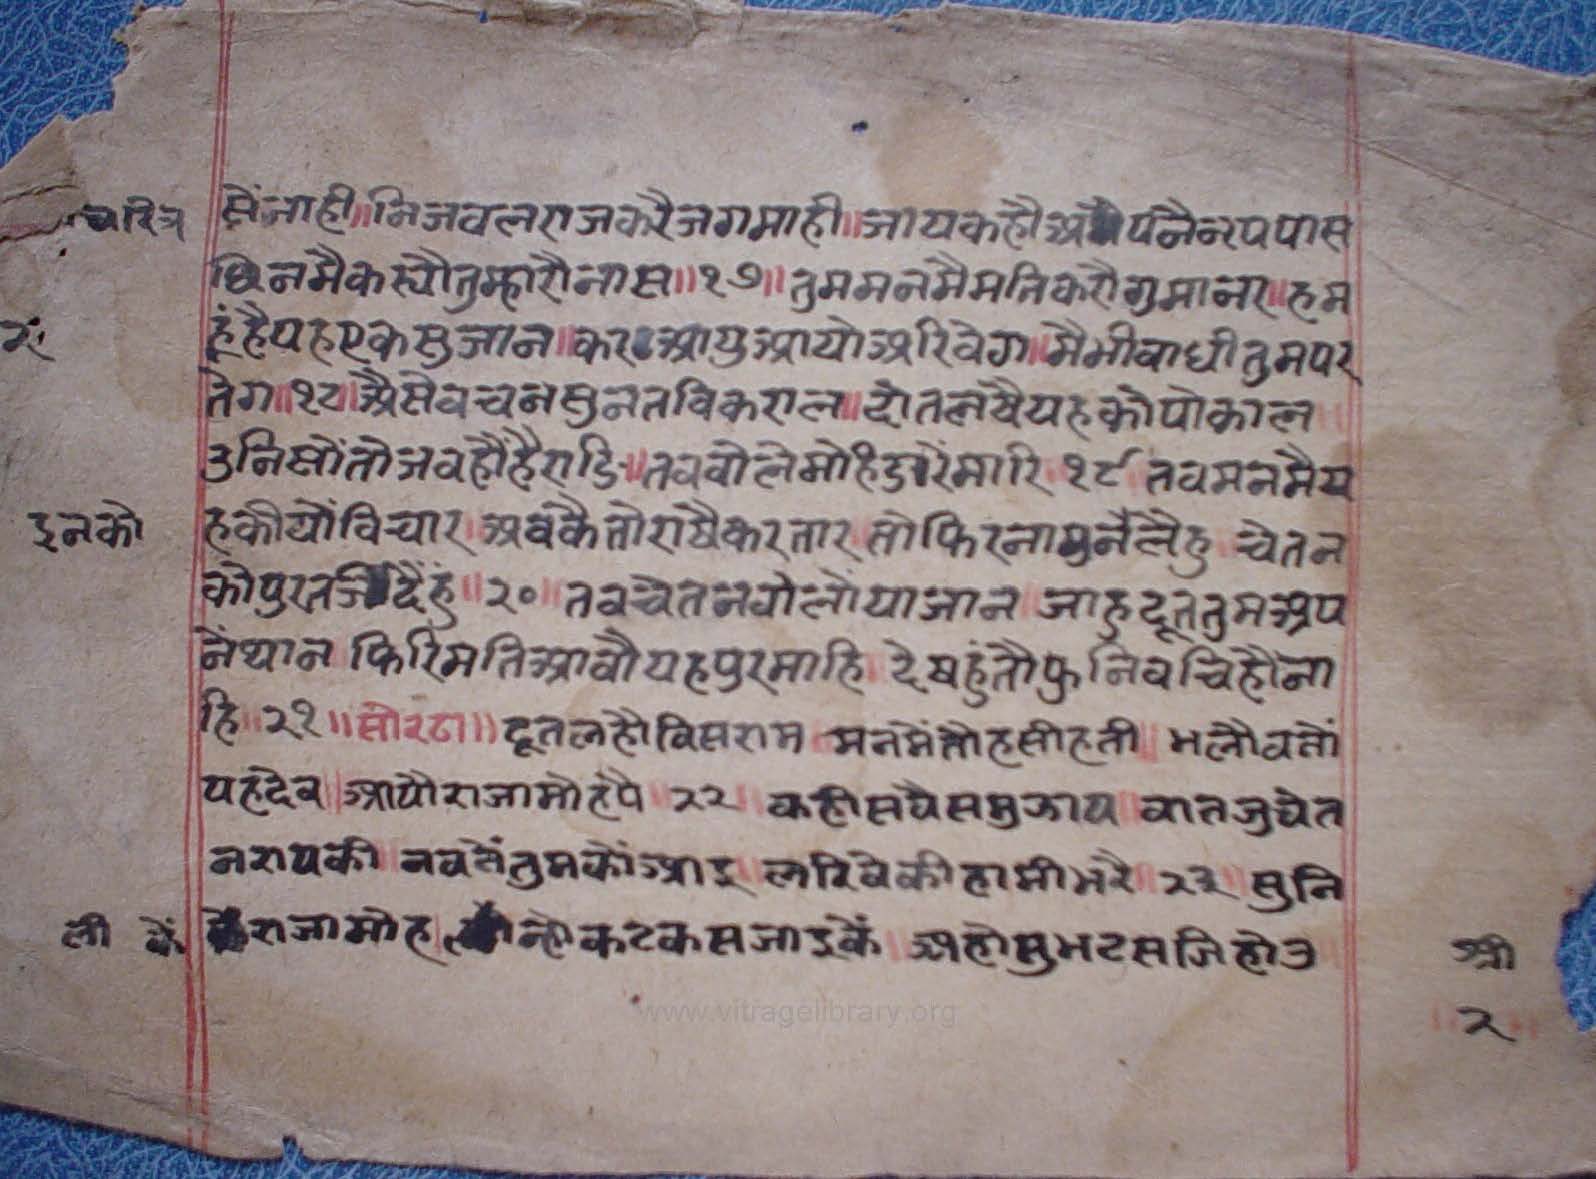 चारित्र सेंजाही॥निजवलराजकरैजगमाही॥जायकहौअपनैनृपपास
छिनमैकस्यौतुम्हारौनास॥१७॥तुममनमैमतिकरौगुमानर॥हम
हूंहैयहएकसुजान॥करआयुआयोअरिवेग॥मैभीवाधीतुमपर
तेग॥१८॥अैसेवचनसुनतविकराल॥दोतलषैयहकोपोकाल॥
उनिसोंतोजवहौंहैरारि॥तववोलेमोहिडारैंमारि॥१९॥तवमनमैय
इनको हकीयौंविचार॥अवकैतोराषैकरतार॥तोफिरनामुनलैहु॥चेतन
कोपुरतजिदैंहुं॥२०॥तवचेतनवोलौंयाजान॥जाहुदूततुमअप
नेंथान॥फिरिंमतिआवौयहपुरमाहि॥देषहुंतौफुनिवचिहौंना
हि॥२१॥सोरठा॥दूतलहौविसराम॥मनमेंतोहसीहती॥भलौवतों
यहदेव॥आयौराजामोहपै॥२२॥कहीसवैसमुझाय॥वातजुचेत
नरायकी॥नवसेंतुमकौंआइ॥लरिवेकीहामीभरै॥२३॥सुनि
ली कैं राजामोह॥न्हौकटकसजाइकैं॥अहोसुभटसजिहोउ॥
श्री
॥२॥
www.vitragelibrary.org